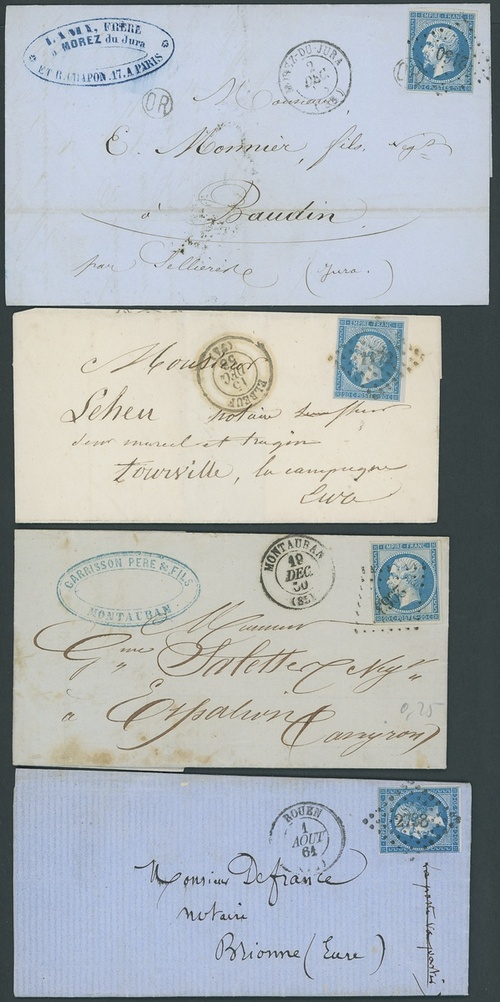 LAMY, FRÈRE
à MOREZ du Jura
ET R. CHAPON. 17. A PARIS
OR
MOREZ-DU-JURA
2
DEC
EMPIRE FRANC
20 C POSTES 20 C
Monsieur
E. Monnier, fils, Negt
à Baudin
par Sellières (Jura.)
ELBEUF
15
DEC
(74)
EMPIRE FRANC
20 C POSTES 20 C
Monsieur
Leheu notaire
Tourville, la campagne
Eure
GARRISSON PERE & FILS
MONTAUBAN
MONTAUBAN
19
DEC.
(82)
20 C POSTES 20 C
Monsieur
Gme Salette Negt
à Espalion
Aveyron
0,25
ROUEN
1
AOUT
61
2798
Monsieur Defrance
notaire
Brionne (Eure)